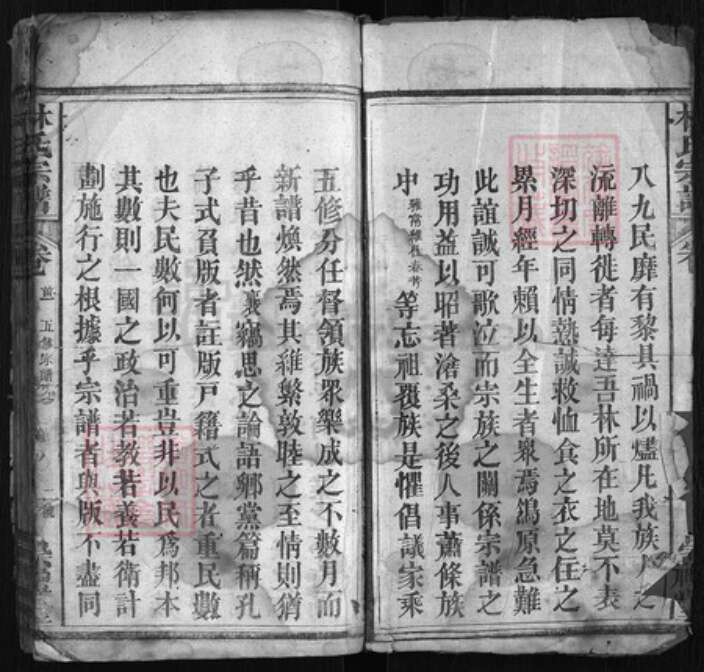 八九民靡有黎具禍以燼凡我族人之
流離轉徙者每達吾林所在地莫不表
深切之同情熱誠救恤食之衣之住之
累月經年賴以全生者衆焉鴒原急難
此誼誠可歌泣而崇族之關係宗譜之
功用益以昭著滄桑之後人事蕭條族
中等忘祖覆族是懼倡議家乘
五修分任督領族眾樂成之不數月而
新譜煥然焉其維繫敦睦之至情則猶
乎昔也然襄竊思之論語鄉黨篇稱孔
子式負版者註版戶籍式之者重民數
也夫民數何以可重豈非以民爲邦本
其數則一國之政治若教若養若衛計
劃施行之根據乎宗譜者與版不盡同
林氏宗譜
卷
五修宗譜
林氏宗譜